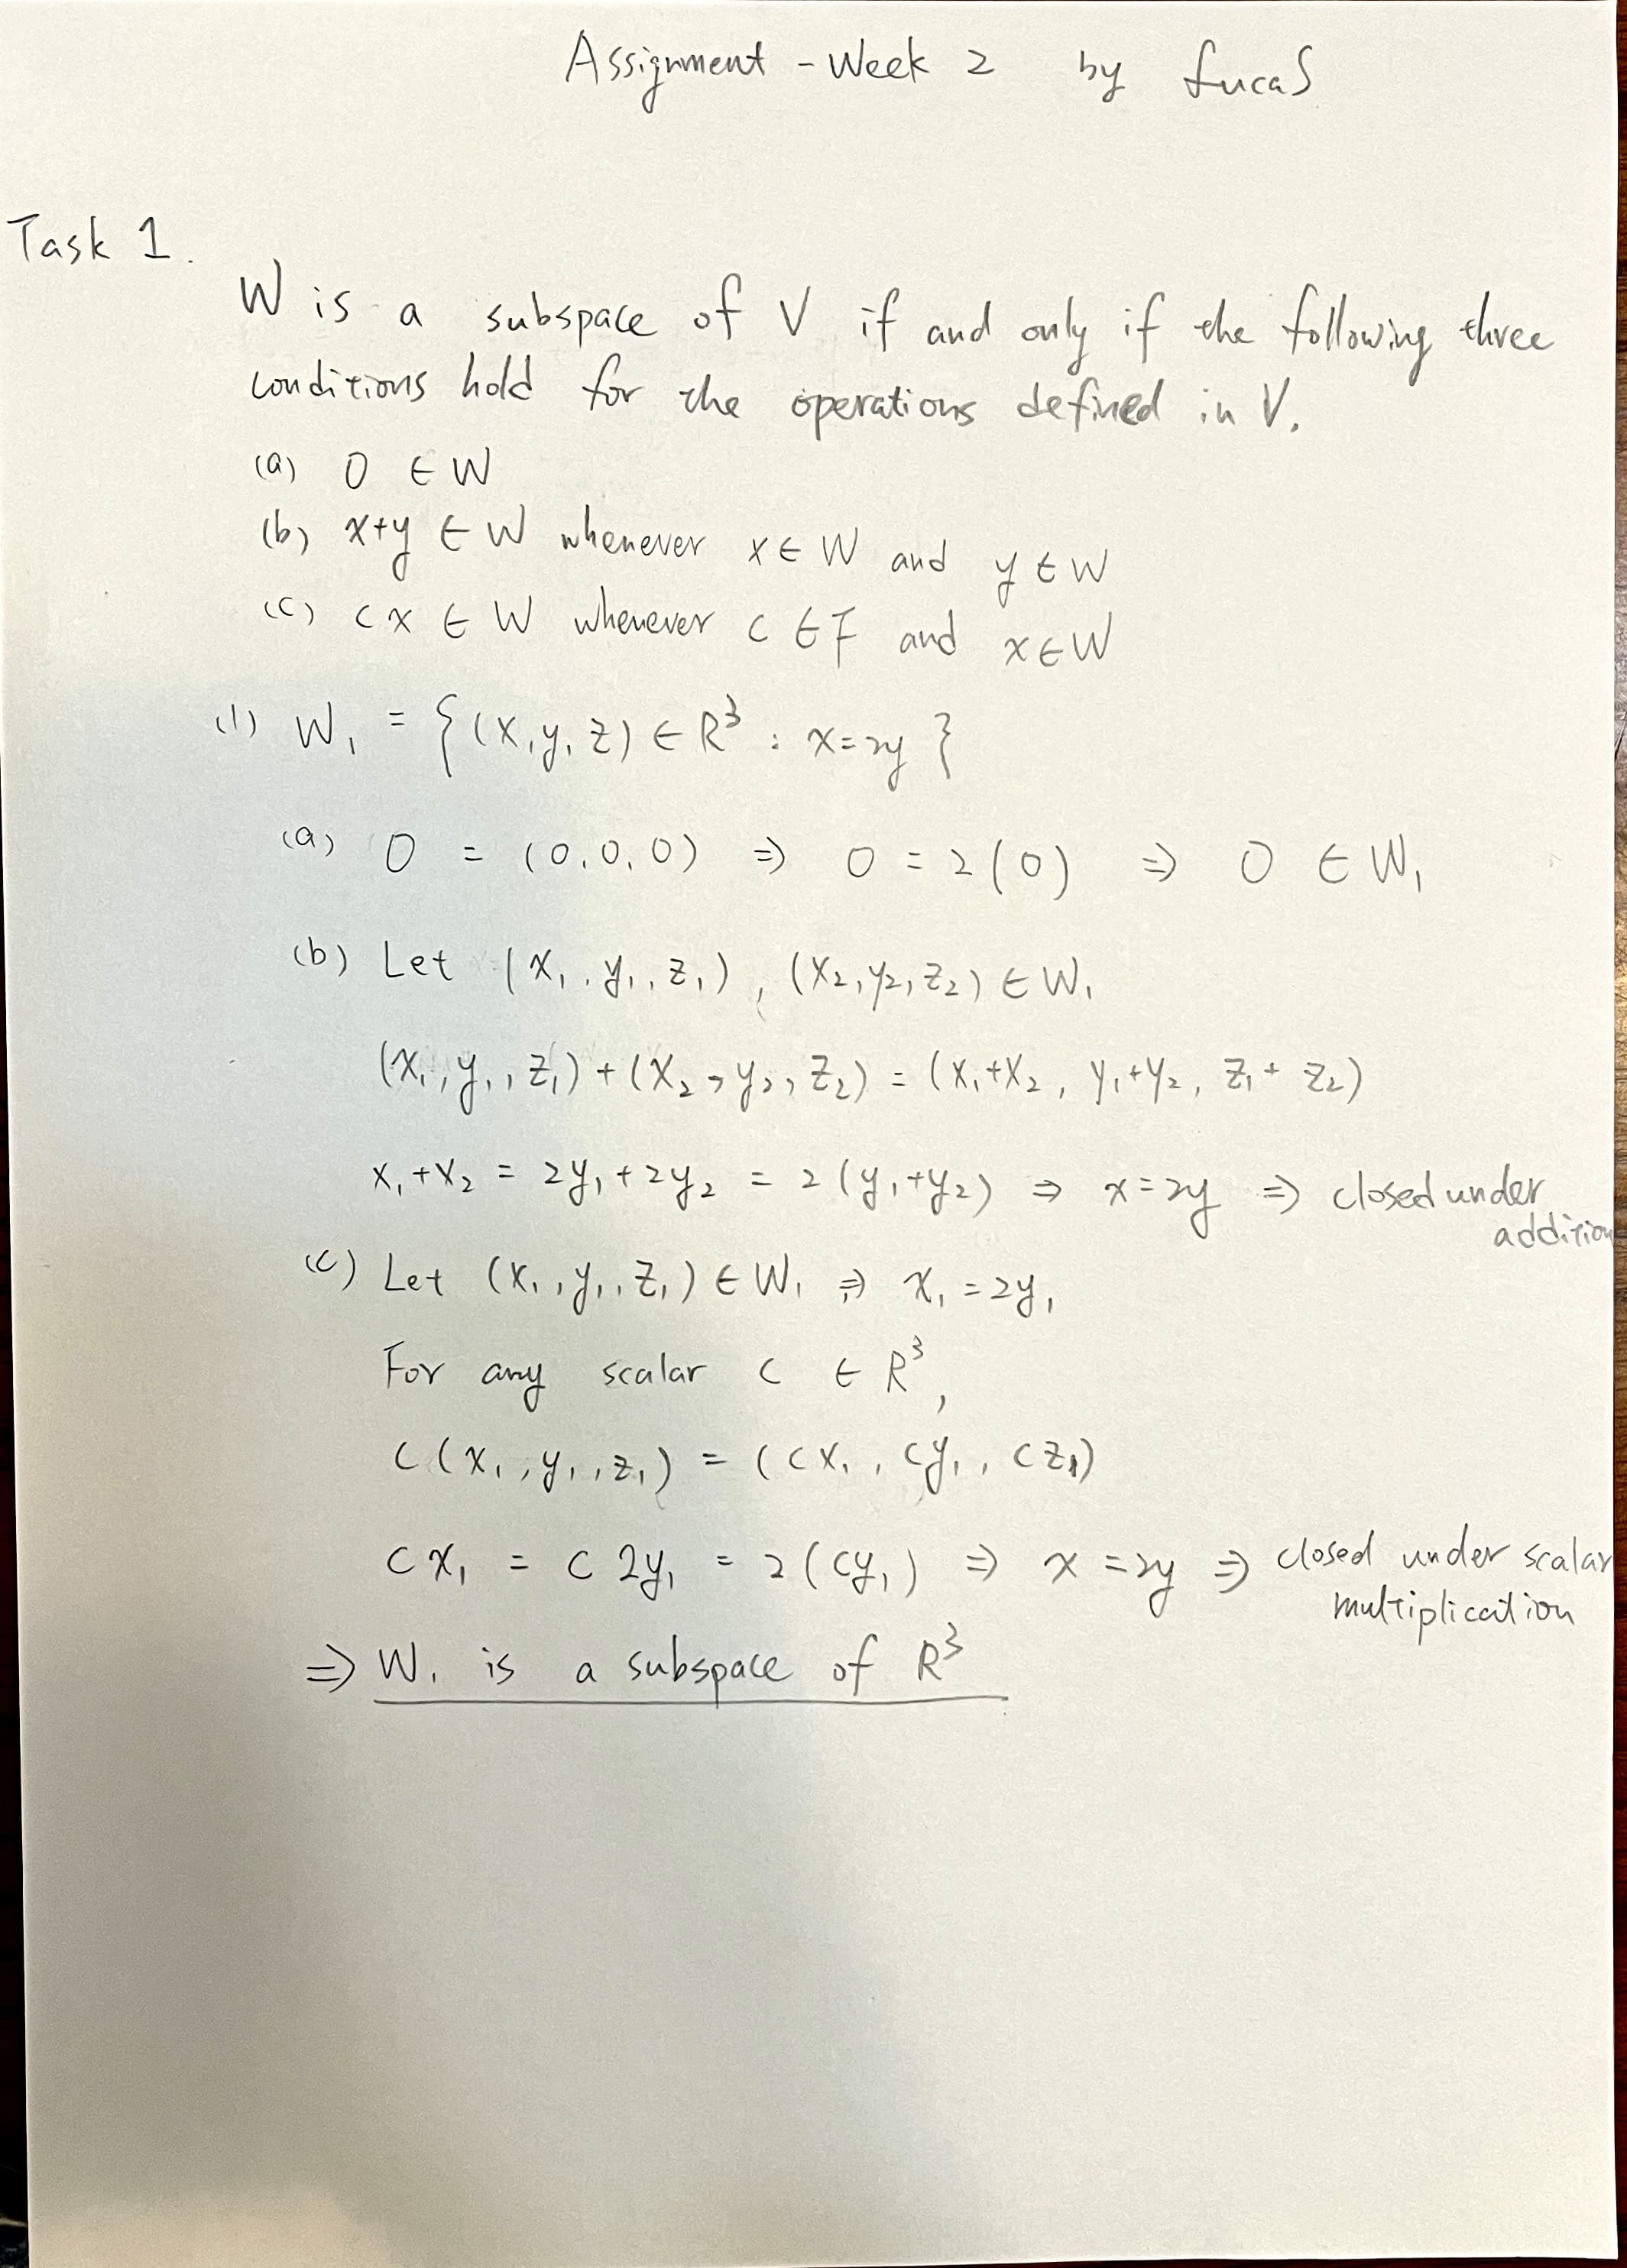 Assignment - Week 2 by Lucas
Task 1.
W is a subspace of V if and only if the following three
conditions hold for the operations defined in V.
(a) 0 ∈ W
(b) x+y ∈ W whenever x ∈ W and y ∈ W
(c) cx ∈ W whenever c ∈ F and x ∈ W
(1) W₁ = {(x, y, z) ∈ R³ : x=2y}
(a) 0 = (0, 0, 0) ⇒ 0 = 2(0) ⇒ 0 ∈ W₁
(b) Let (x₁, y₁, z₁), (x₂, y₂, z₂) ∈ W₁
(x₁, y₁, z₁) + (x₂, y₂, z₂) = (x₁+x₂, y₁+y₂, z₁+z₂)
x₁+x₂ = 2y₁+2y₂ = 2(y₁+y₂) ⇒ x=2y ⇒ closed under
addition
(c) Let (x₁, y₁, z₁) ∈ W₁ ⇒ x₁ = 2y₁
For any scalar c ∈ R³,
c(x₁, y₁, z₁) = (cx₁, cy₁, cz₁)
cx₁ = c2y₁ = 2(cy₁) ⇒ x = 2y ⇒ closed under scalar
multiplication
⇒ W₁ is a subspace of R³